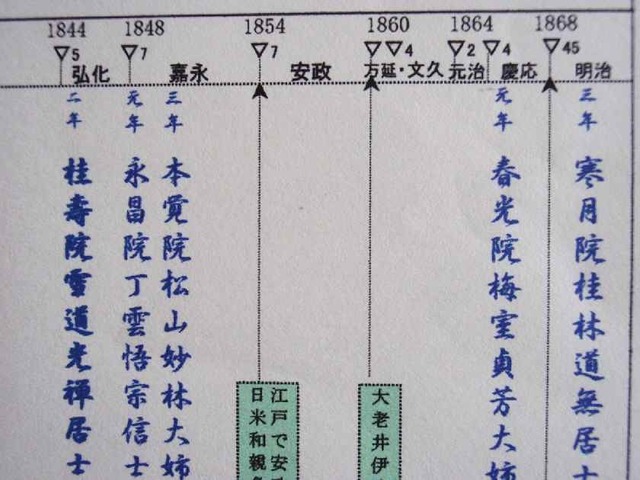 1844 1848 1854 1860 1864 1868
▽5 ▽7 ▽7 ▽▽4 ▽2 ▽4 ▽45
弘化 嘉永 安政 万延・文久 元治 慶応 明治
三年 寒月院桂林道無居士
元年 春光院梅室貞芳大姉
大老井伊
江戸で安政
日米和親条
三年 本覚院松山妙林大姉
元年 永昌院丁雲悟宗信士
二年 桂寿院霊道光禅居士